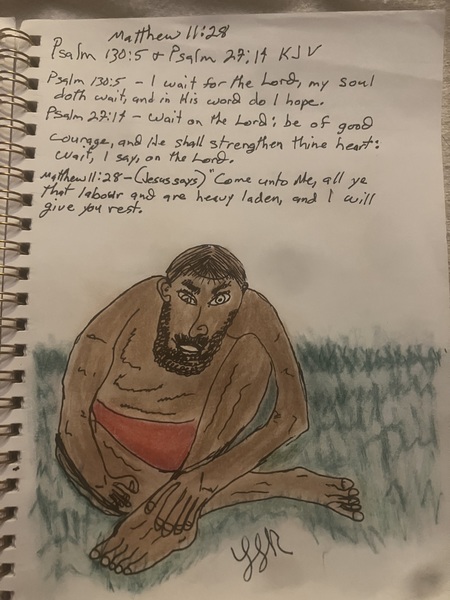 Matthew 11:28
Psalm 130:5 & Psalm 27:14 KJV
Psalm 130:5 - I wait for the Lord, my soul
doth wait, and in His word do I hope.
Psalm 27:14 - Wait on the Lord: be of good
courage, and He shall strengthen thine heart:
wait, I say, on the Lord.
Matthew 11:28 - (Jesus says) "Come unto Me, all ye
that labour and are heavy laden, and I will
give you rest.